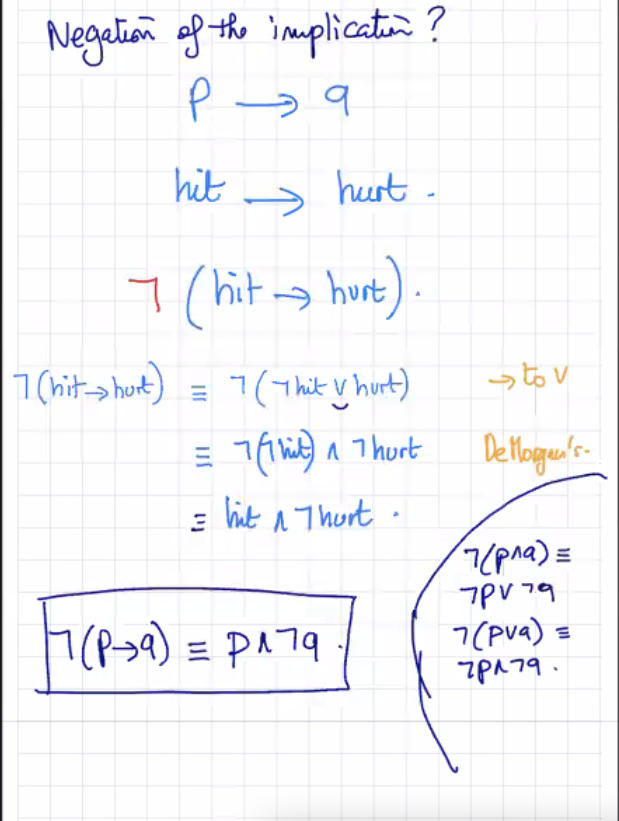 Negation of the implication?
p → q
hit → hurt.
¬(hit → hurt).
¬(hit→hurt) ≡ ¬(¬hit ∨ hurt) → to ∨
≡ ¬(¬hit) ∧ ¬hurt DeMorgan's.
≡ hit ∧ ¬hurt.
¬(p∧q) ≡
¬p∨¬q
¬(p∨q) ≡
¬p∧¬q.
¬(p→q) ≡ p∧¬q.